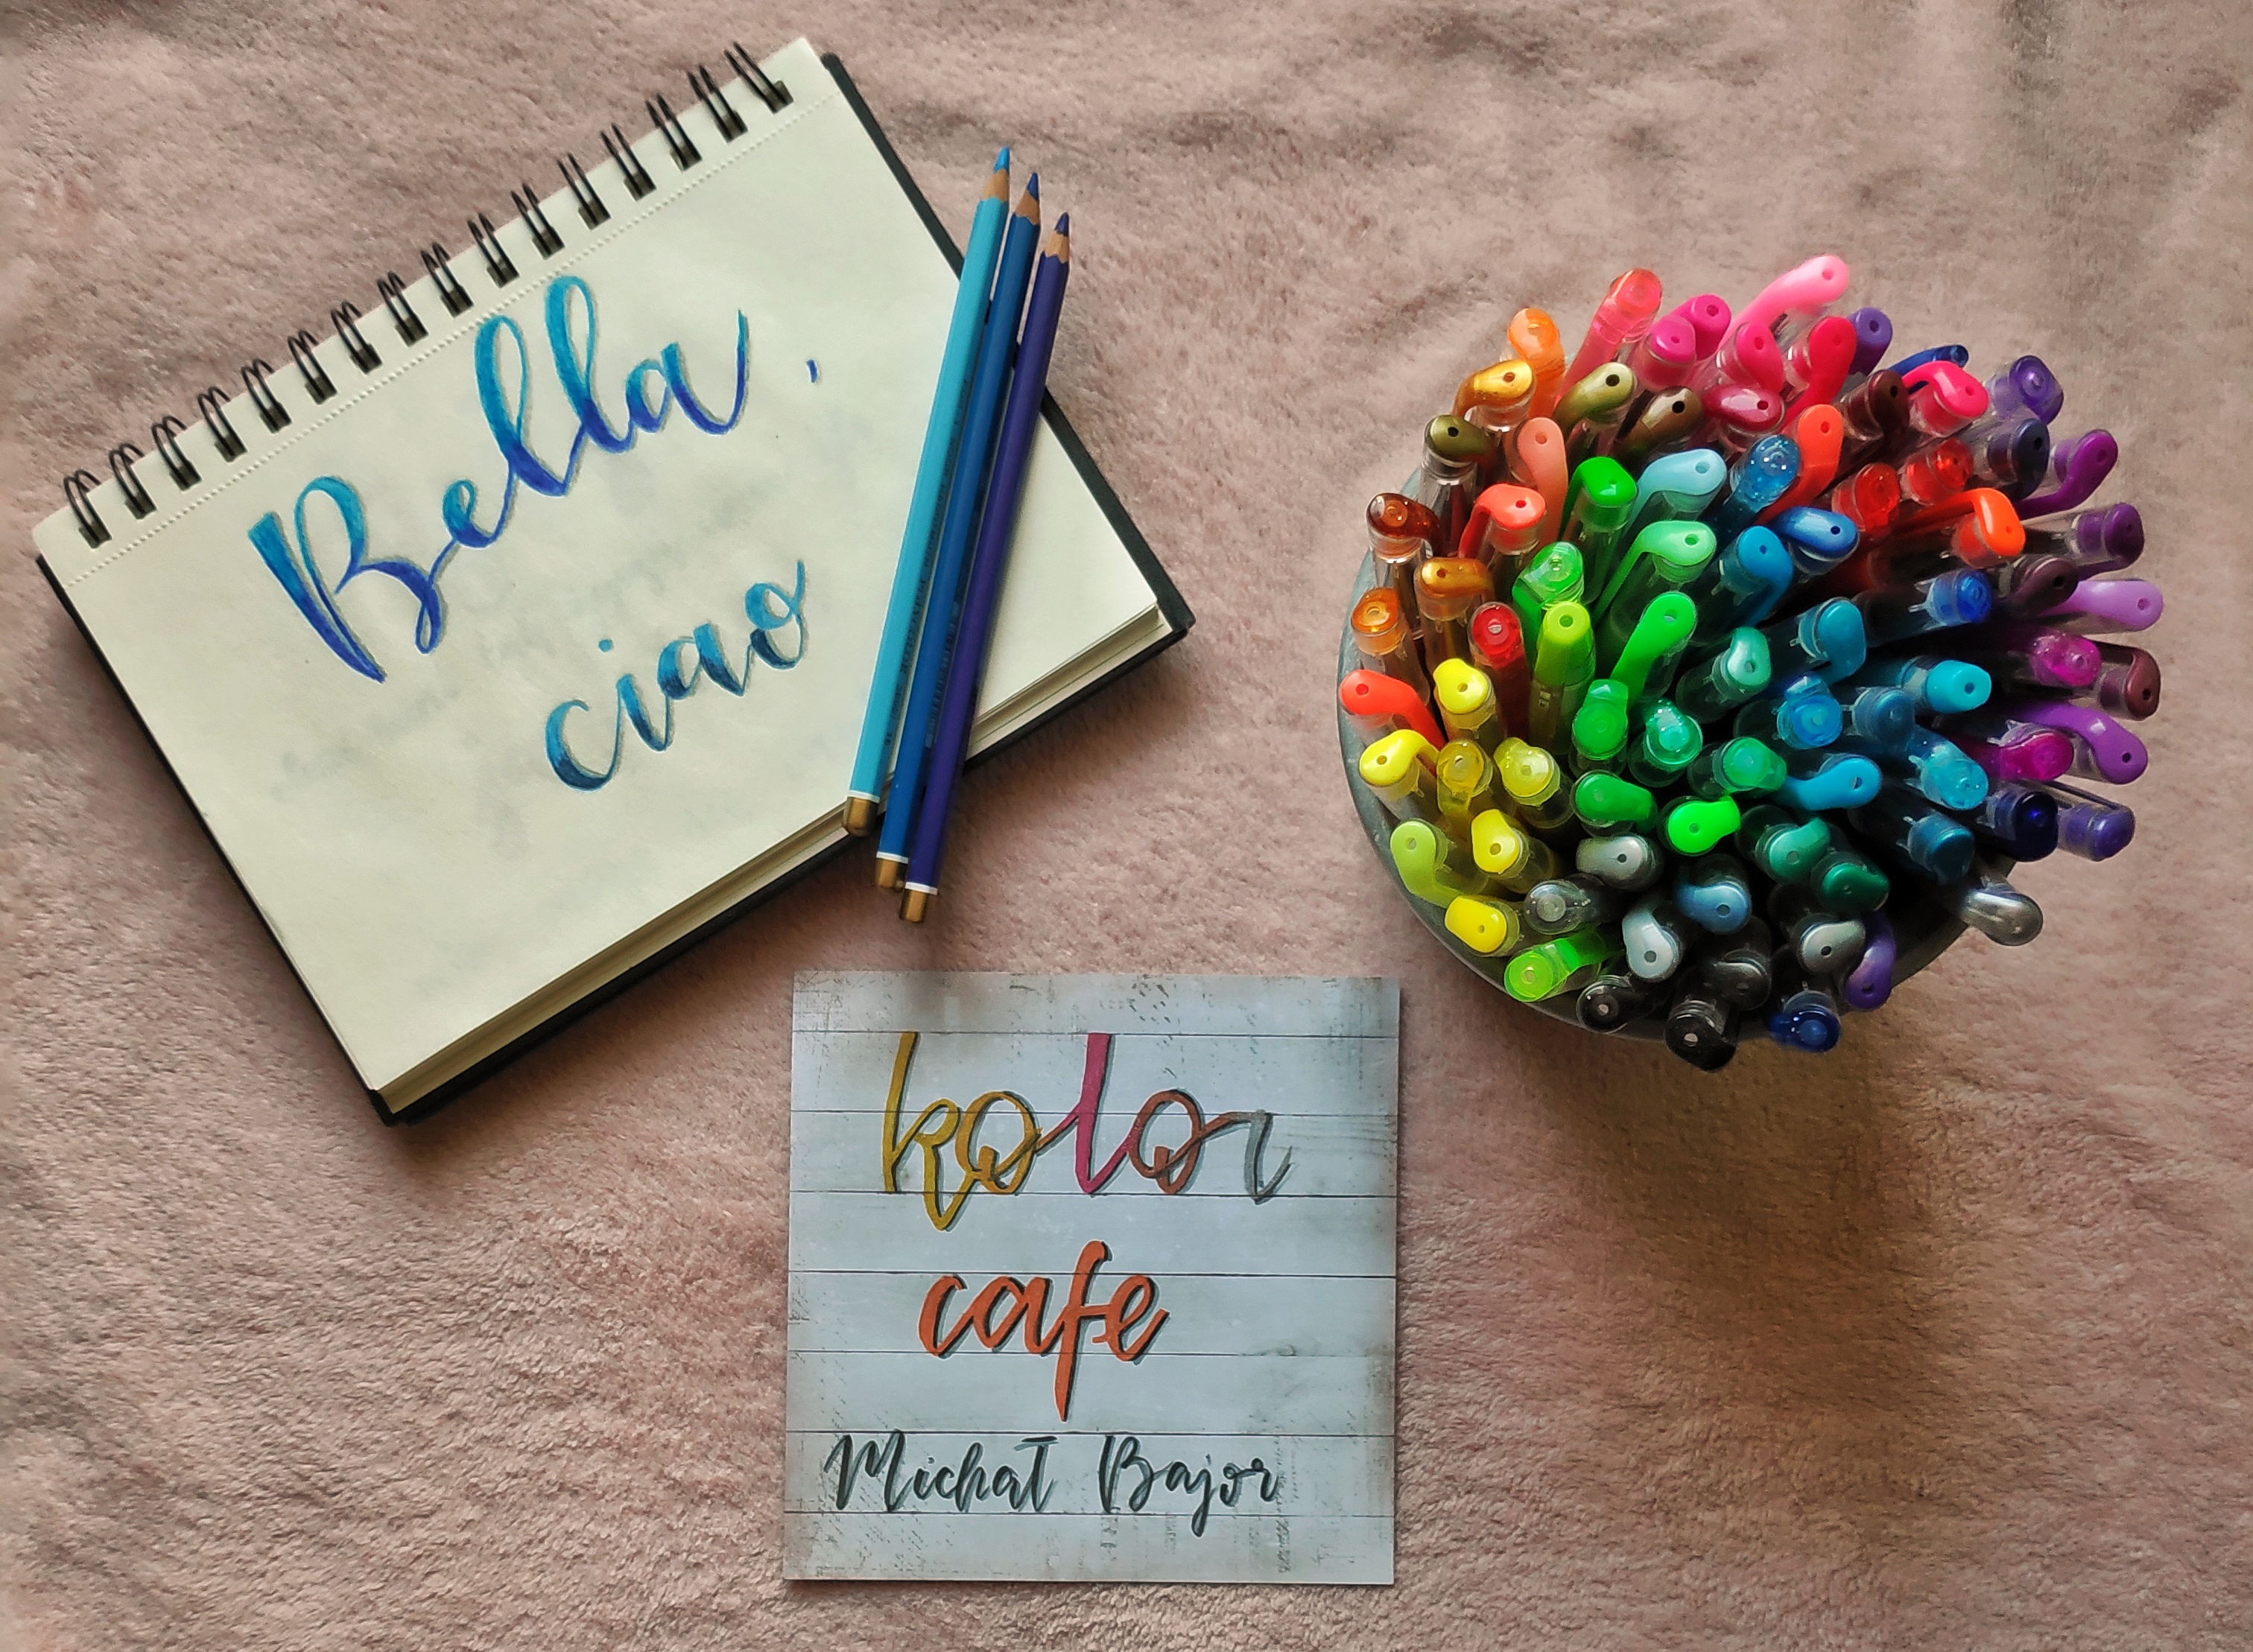 Bella,
ciao
kolor
cafe
Michał Bajor